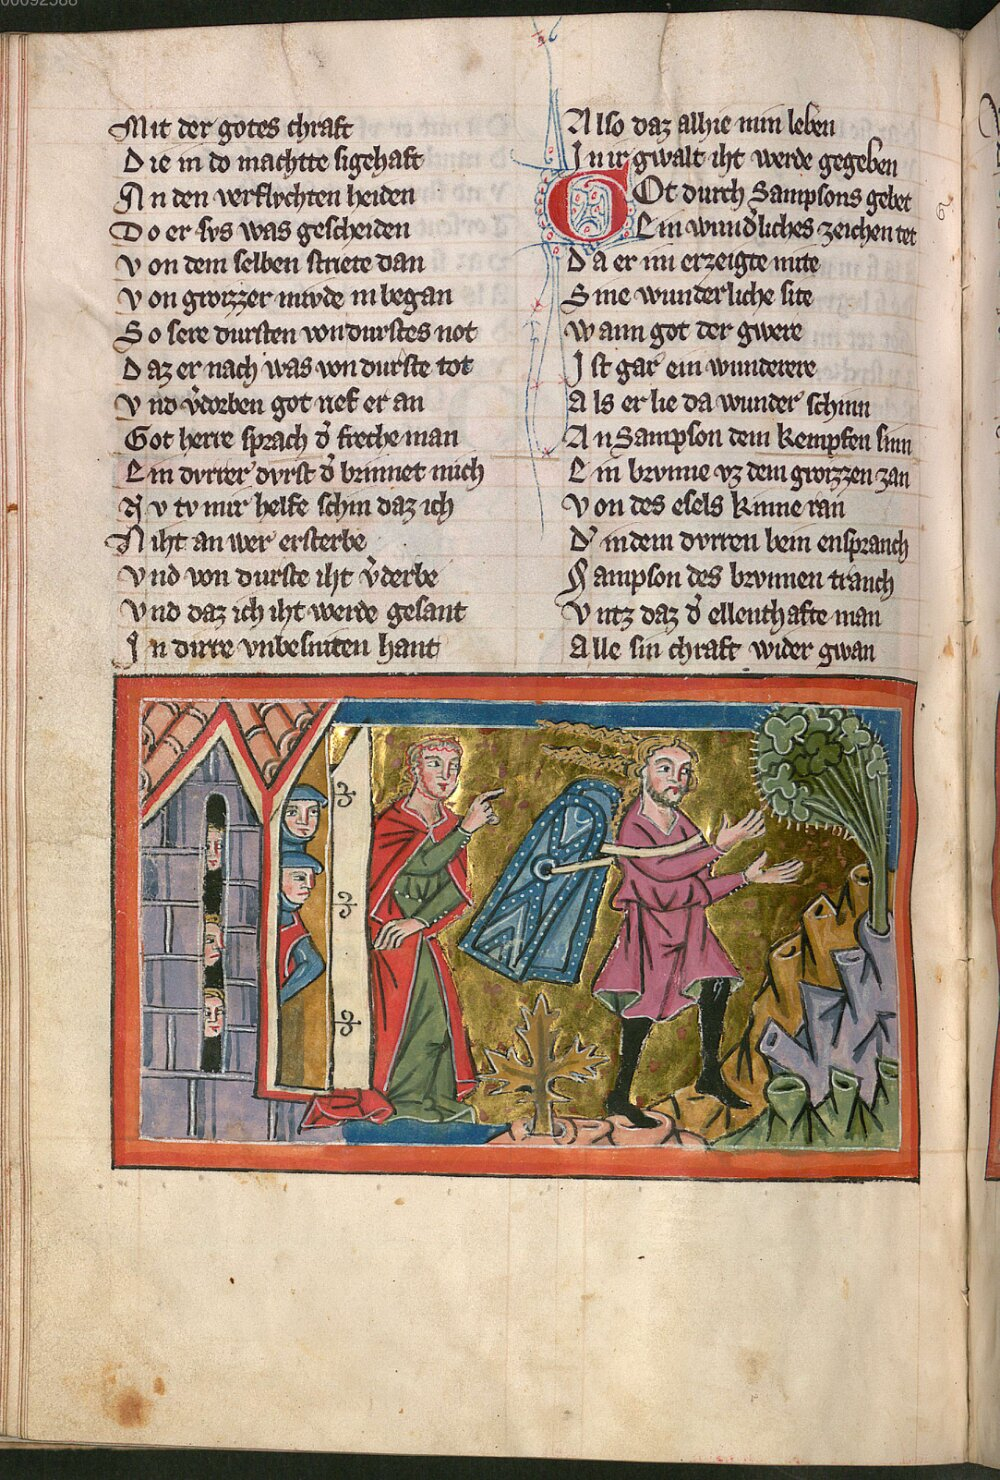 00092588
Mit der gotes chraft
Die in do machtte sigehaft
An den verflvchten heiden
Do er svs was gescheiden
Von dem selben striete dan
Von grozzer mvde in began
So sere dursten von durstes not
Daz er nach was von durste tot
Vnd v͛dorben got rief er an
Got herre sprach d͛ freche man
Ein dvrrer dvrst d͛ brinnet mich
Nv tv mir helfe schin daz ich
Niht an wer ersterbe
Vnd von durste iht v͛derbe
Vnd daz ich iht werde gesant
In dirre vnbesniten hant
Also daz alhie min leben
In ir gwalt iht werde gegeben
GOt durch Sampsons gebet
Ein wund͛liches zeichen tet
Da er im erzeigte mite
Sine wunderliche site
Wann got der gwere
Ist gar ein wunderere
Als er lie da wunder schinn
An Sampson dem kempfen sinn
Ein brvnne vz dem grozzen zan
Von des esels kinne ran
D͛ in dem dvrren bein enspranch
Sampson des brvnnen tranch
Vntz daz d͛ ellenthafte man
Alle sin chraft wider gwan